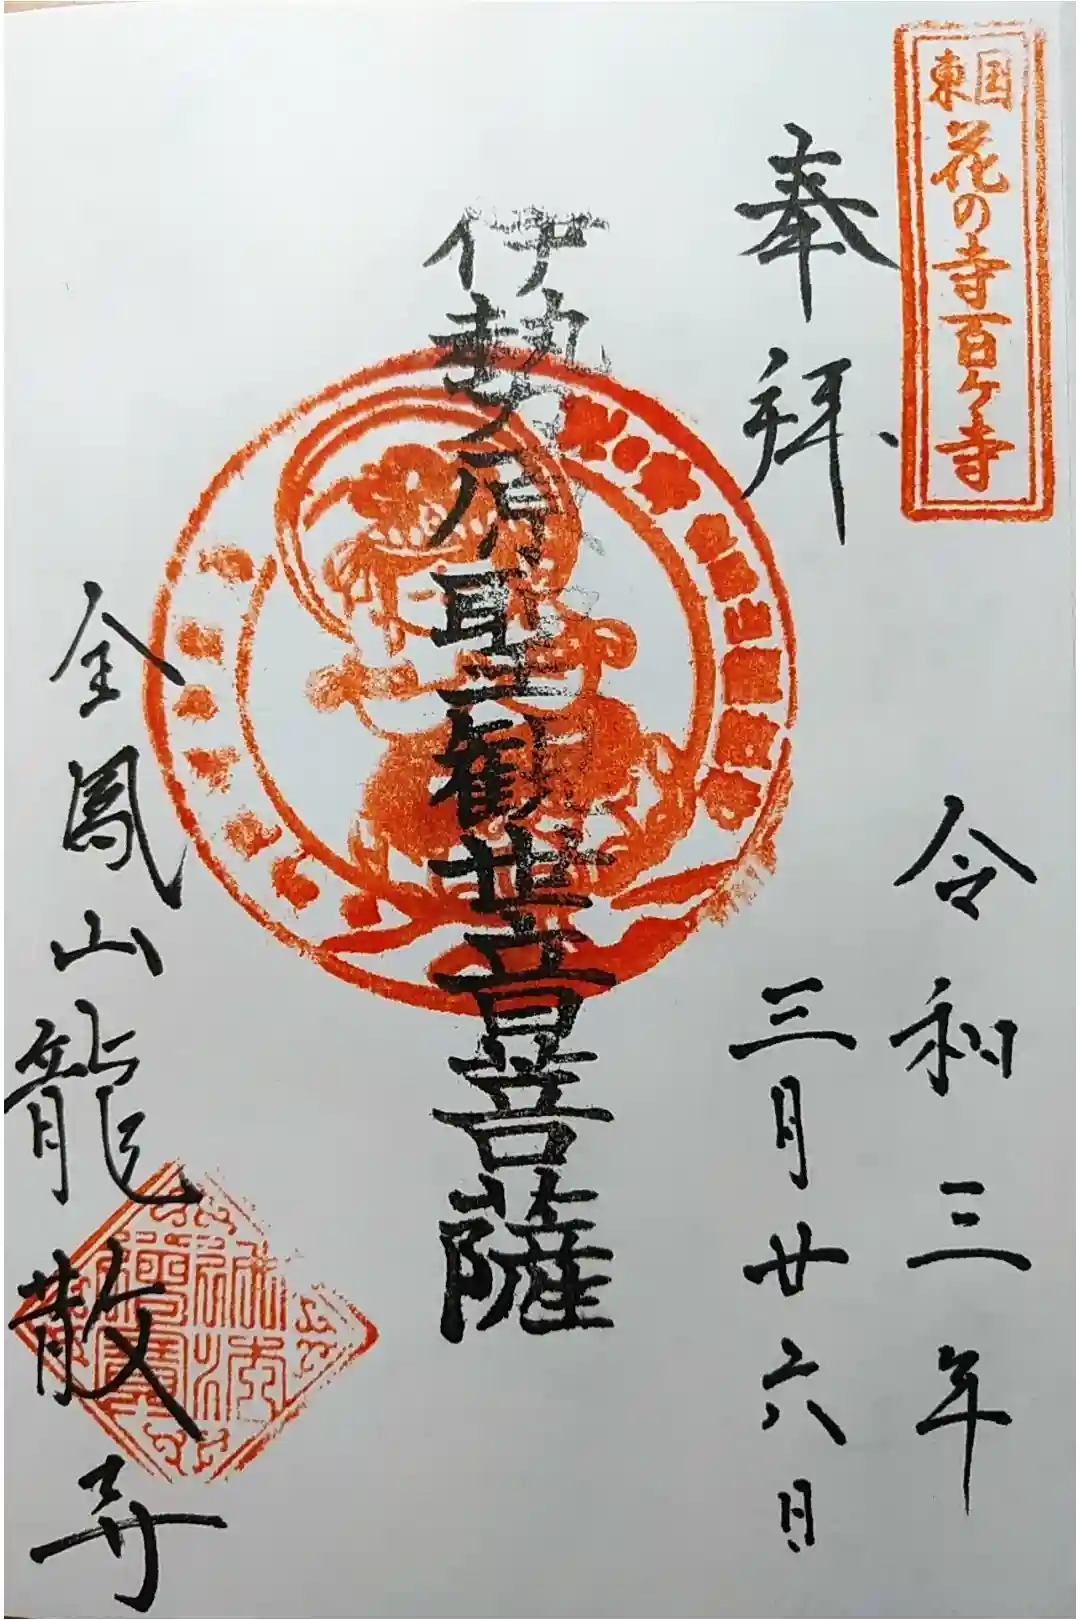 東国花の寺百ヶ寺
奉拝
令和三年
三月廿六日
伊勢原聖観世音菩薩
金鳳山龍散寺